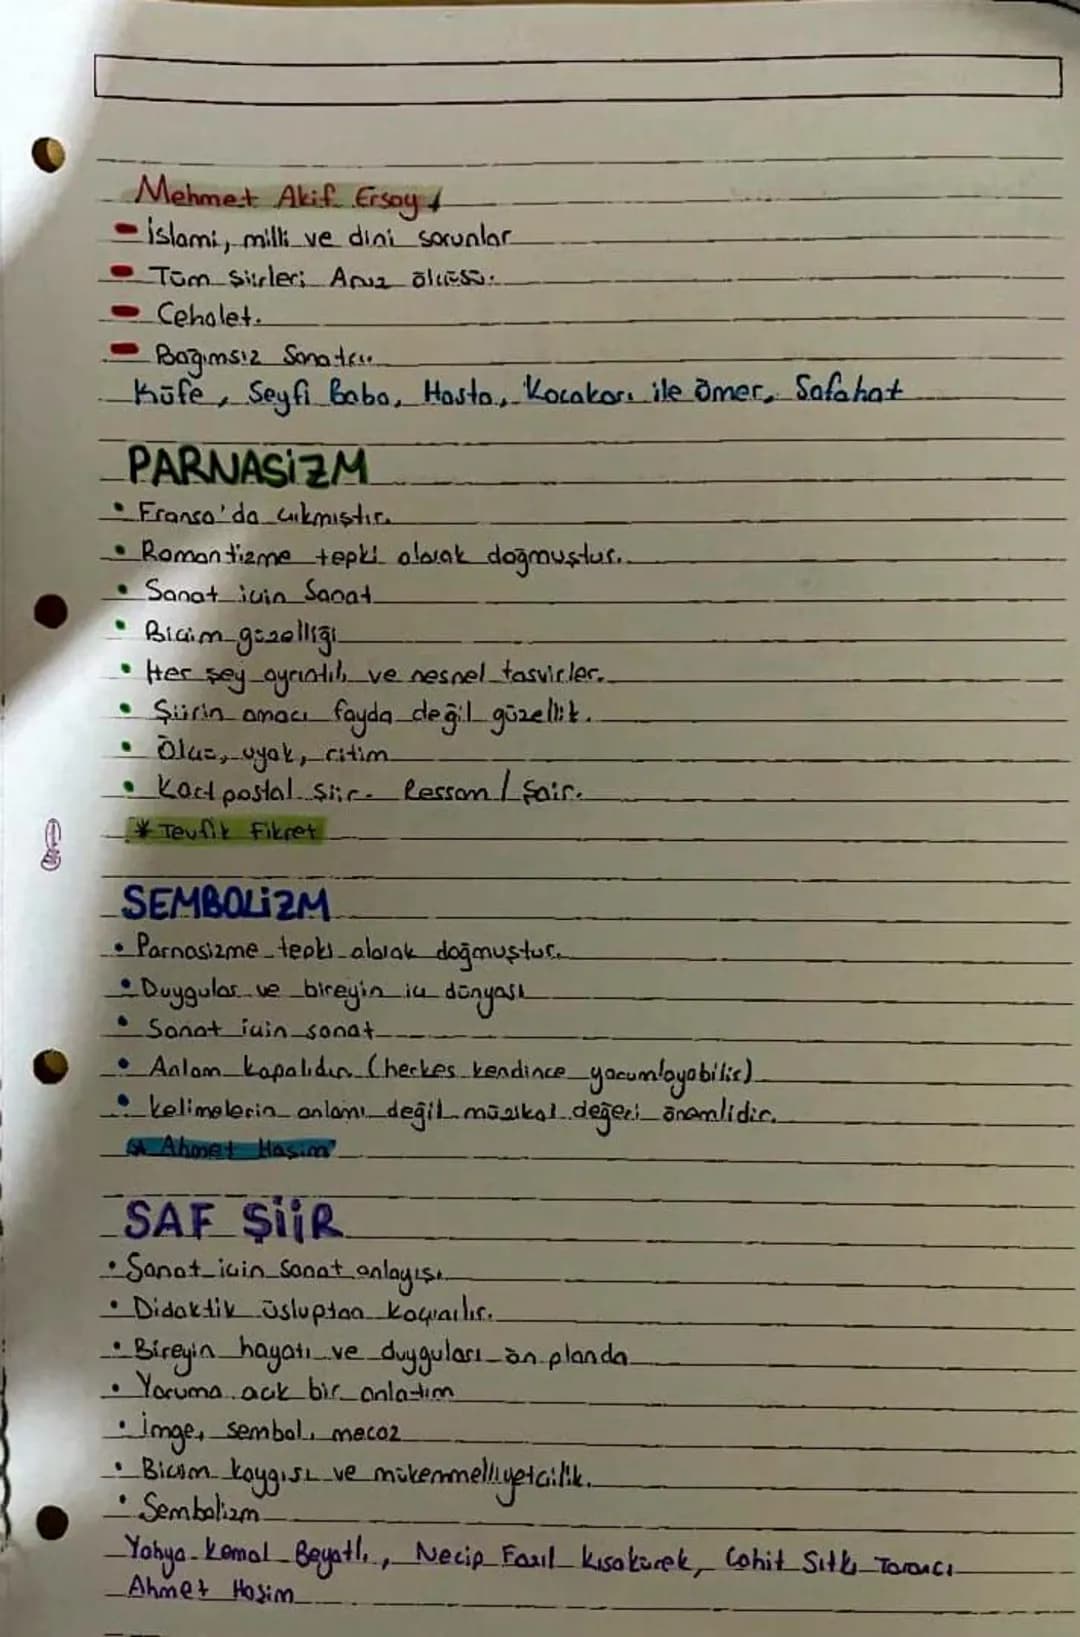 Mehmet Akif Ersoy
İslami, milli ve dini sorunlar
Tüm şiirleri Aruz ölçüsü.
Cehalet.
Bağımsız Sanatçı.
Küfe, Seyfi Baba, Hasta, Kocakarı ile Ömer, Safahat
PARNASİZM
• Fransa'da çıkmıştır.
• Romantizme tepki olarak doğmuştur.
• Sanat için Sanat
• Biçim güzelliği
• Her şey ayrıntılı ve nesnel tasvirler.
• Şiirin amacı fayda değil güzellik.
• Ölçü, uyak, ritim
• Kartpostal şiir. Ressam / Şair.
* Tevfik Fikret
SEMBOLİZM
• Parnasizme tepki olarak doğmuştur.
• Duygular ve bireyin iç dünyası
• Sanat için sanat
• Anlam kapalıdır (herkes kendince yorumlayabilir)
• Kelimelerin anlamı değil müzikal değeri önemlidir.
Ahmet Haşim
SAF ŞİİR
• Sanat için Sanat anlayışı.
• Didaktik üsluptan kaçınılır.
• Bireyin hayatı ve duyguları ön planda
• Yoruma açık bir anlatım
• İmge, sembol, mecaz
• Biçim kaygısı ve mükemmelliyetçilik.
• Sembolizm
Yahya Kemal Beyatlı, Necip Fazıl Kısakürek, Cahit Sıtkı Tarancı
Ahmet Haşim